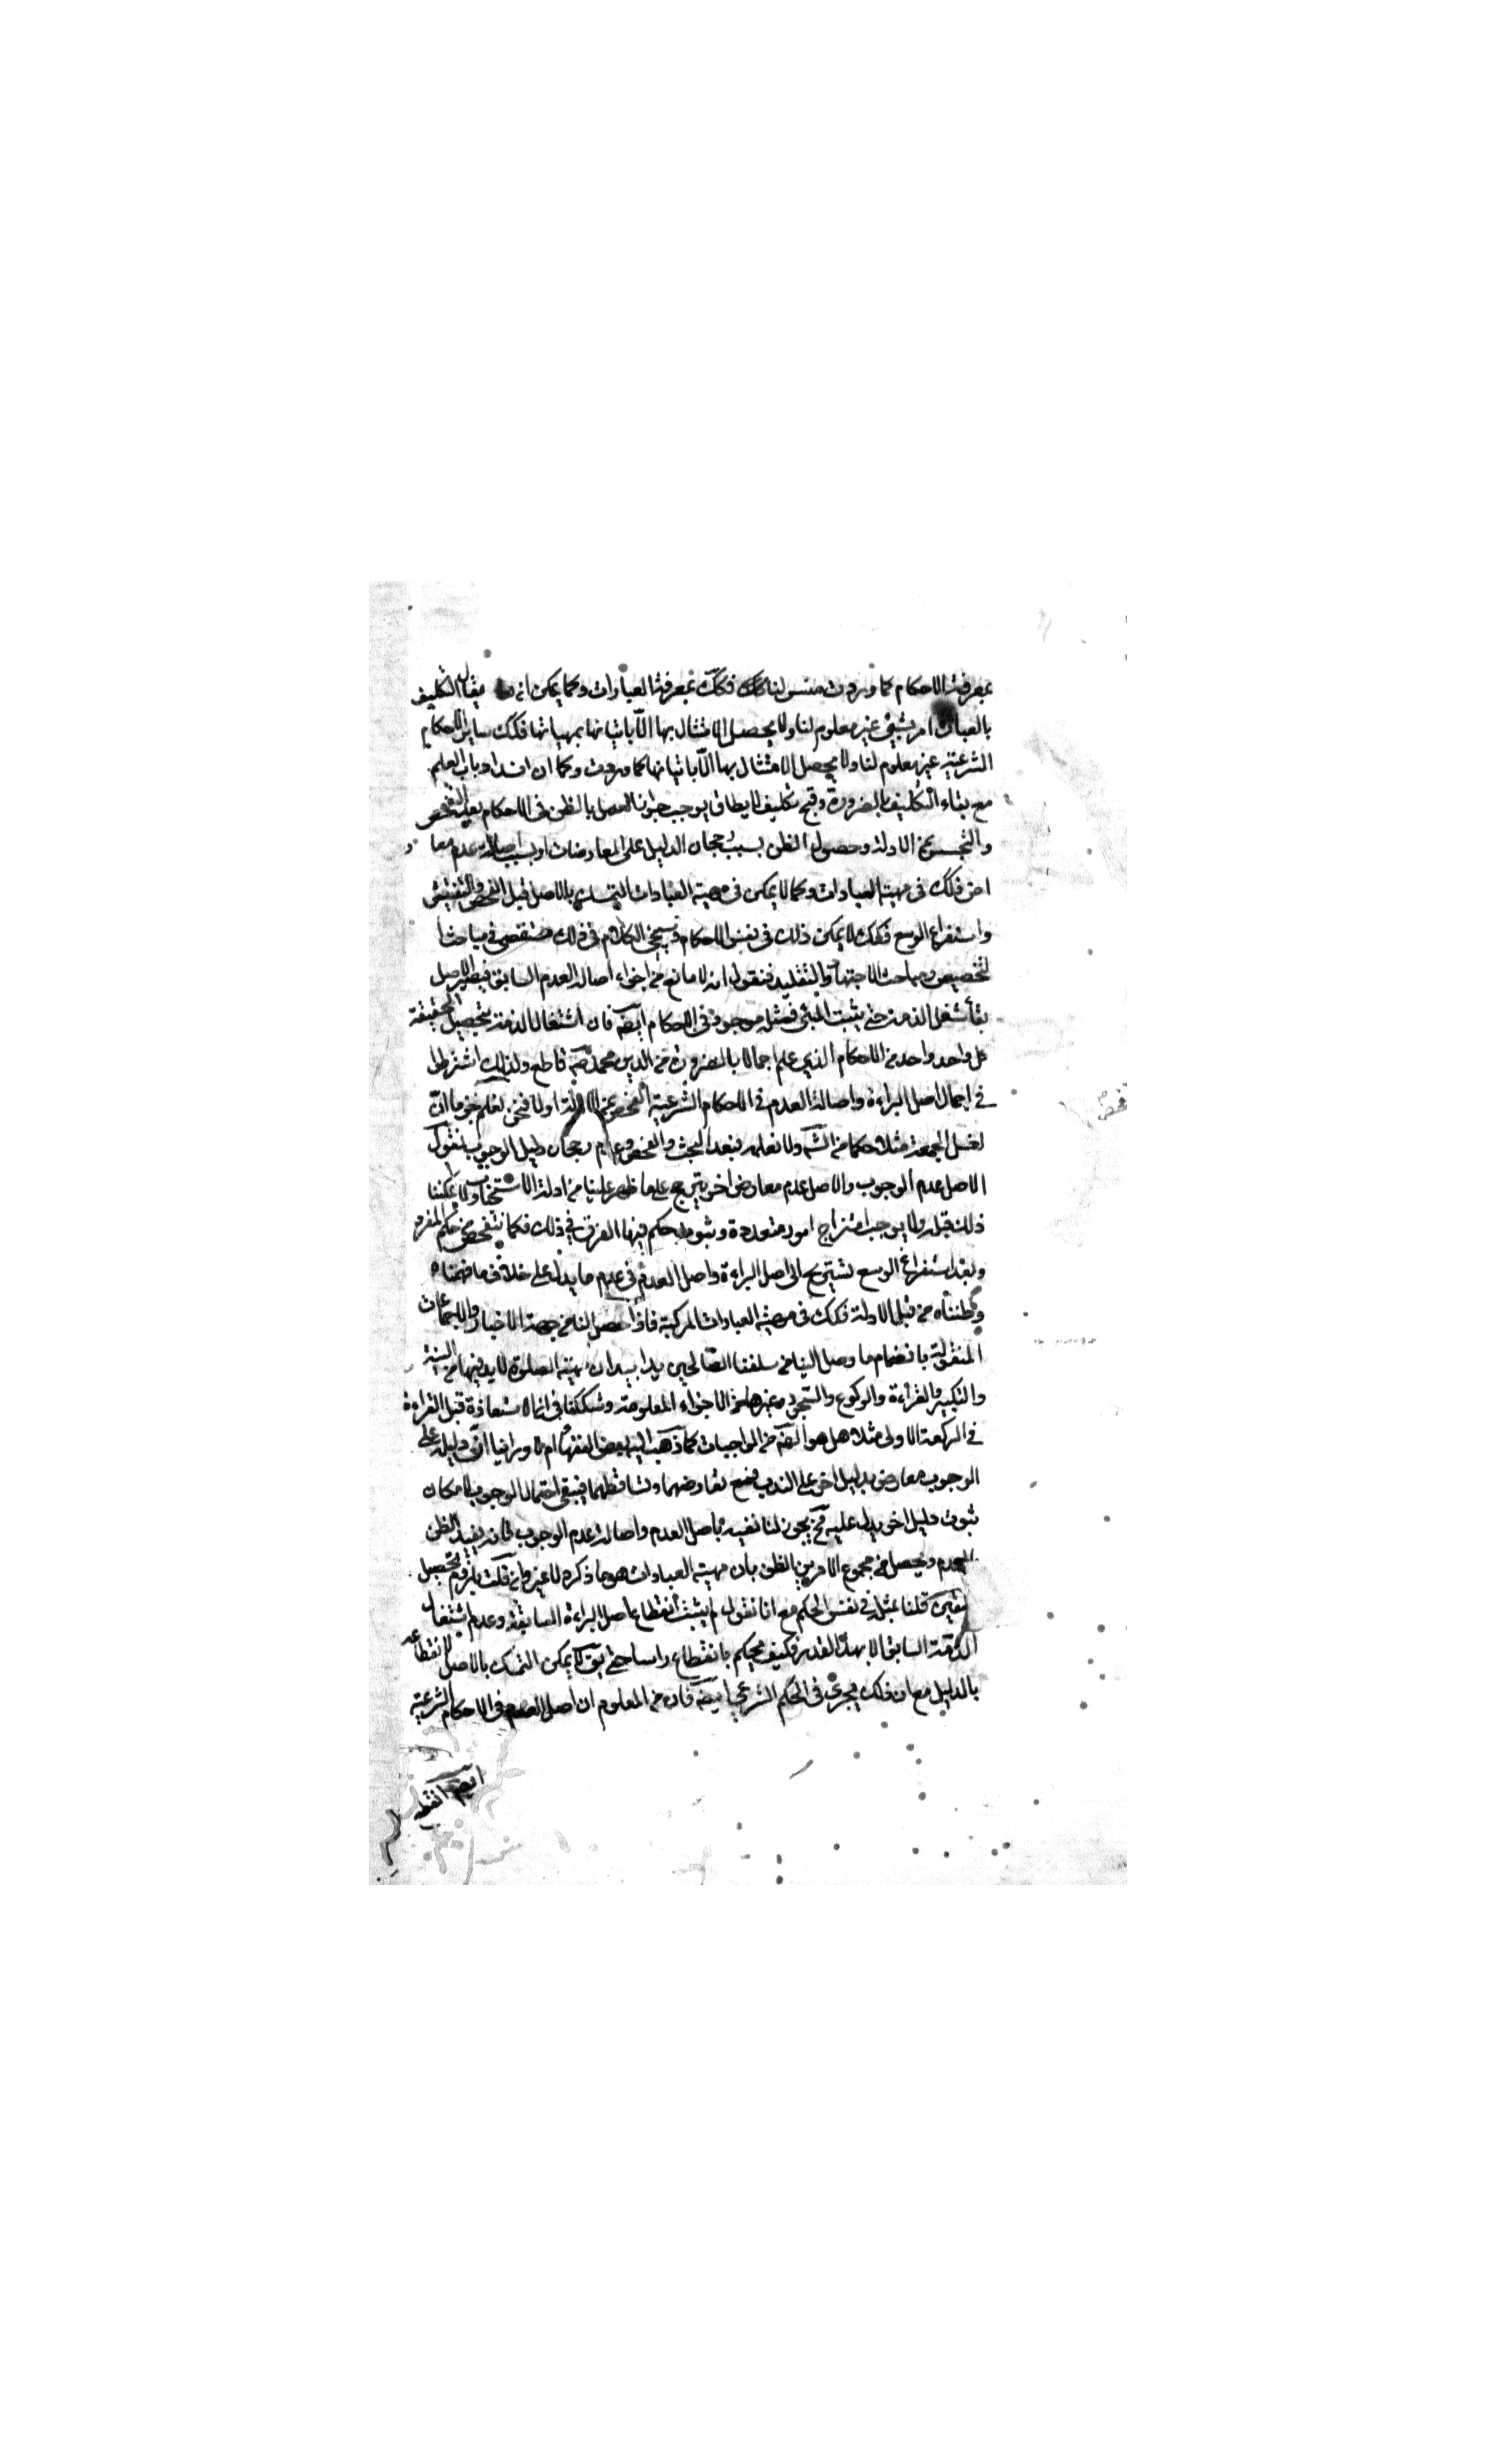 بمعرفة الاحكام كما وردت منسوبا لنا كك فكك بمعرفة العبادات وكما يمكن ان يقال التكليف
بالعبادات امر يقيني غير معلوم لنا ولا يحصل الامتثال بها الا باتيانها بمهياتها فكك ساير الاحكام
الشرعية غير معلوم لنا ولا يحصل الامتثال بها الا باتيانها كما وردت وكما ان انسداد باب العلم
مع بقاء التكليف بالضرورة وقبح تكليف ما لا يطاق يوجب جواز العمل بالظن فى الاحكام بعد التفحص
والتجسس عن الادلة وحصول الظن بسبب رجحان الدليل على المعارضات او بسبب اصالة عدم معا
اخر فكك فى مهية العبادات وكما لا يمكن فى مهية العبادات التمسك بالاصل قبل الفحص والتفتيش
واستفراغ الوسع فكك لا يمكن ذلك فى نفس الاحكام وسيجئ الكلام فى ذلك مستقصى فى مباحث
التخصيص ومباحث الاجتهاد والتقليد فنقول انه لا مانع من اجراء اصالة العدم السابق فبطير الاصل
بقاء شغل الذمة حتى يثبت المبرئ فمثله موجود فى الاحكام ايضه فان اشتغال الذمة بتحصيل الحقيقة
كل واحد واحد من الاحكام الذى علم اجمالا بالضرورة من الدين محمد صه قاطع ولذلك اشترطوا
فى اعمال اصل البراءة واصالة العدم فى الاحكام الشرعية الفحص عن الادلة اولا فنحن نعلم جزما ان
لغسل الجمعة مثلا حكما من الشه ولا نعلمه فبعد البحث والفحص وعدم رجحان دليل الوجوب نقول
الاصل عدم الوجوب والاصل عدم معارض اخر يترجح على ما ظهر علينا من ادلة الاستحباب ولا يمكننا
ذلك قبله ولا يوجب امتزاج امور متعددة وثبوت حكم فيها الفرق فى ذلك فكما نتفحص عن حكم المفرد
وبعد استفراغ الوسع نستريح الى اصل البراءة واصل العدم فى عدم ما يدل على خلاف ما فهمناه
وظنناه من قبل الادلة فكك فى مهية العبادات المركبة فاذا حصل لنا من جهة الاخبار والاجماعات
المنقولة بانضمام ما وصل الينا من سلفنا الصالحين يدا بيد ان مهية الصلوة لا بد فيها من النية
والتكبير والقراءة والركوع والسجود وغيرها من الاجزاء المعلومة وشككنا فى ان الاستعاذة قبل القراءة
فى الركعة الاولى مثلا هل هو ايضه من الواجبات كما ذهب اليه بعض الفقهاء ام لا وراينا ان دليله على
الوجوب معارض بدليل اخر على الندب فمع تعارضهما وتساقطهما فيبقى احتمال الوجوب لامكان
ثبوت دليل اخر يدل عليه فح يجوز لنا نفيه باصل العدم واصالة عدم الوجوب فانه يفيد الظن
بالعدم ويحصل من مجموع الامرين الظن بان مهية العبادات هو ما ذكره لا غير وان قلت يلزم تحصيل
اليقين قلنا بمثله فى نفس الحكم مع انا نقول لم يثبت انقطاع اصل البراءة السابقة وعدم اشتغال
الذمة السابق الا بهذا القدر فكيف يحكم بانقطاعه راسا حتى يق لا يمكن التمسك بالاصل لانقطاعه
بالدليل مع ان ذلك يجرى فى الحكم الشرعى ايضه فان من المعلوم ان اصل العدم فى الاحكام الشرعية
ايضه انقطع